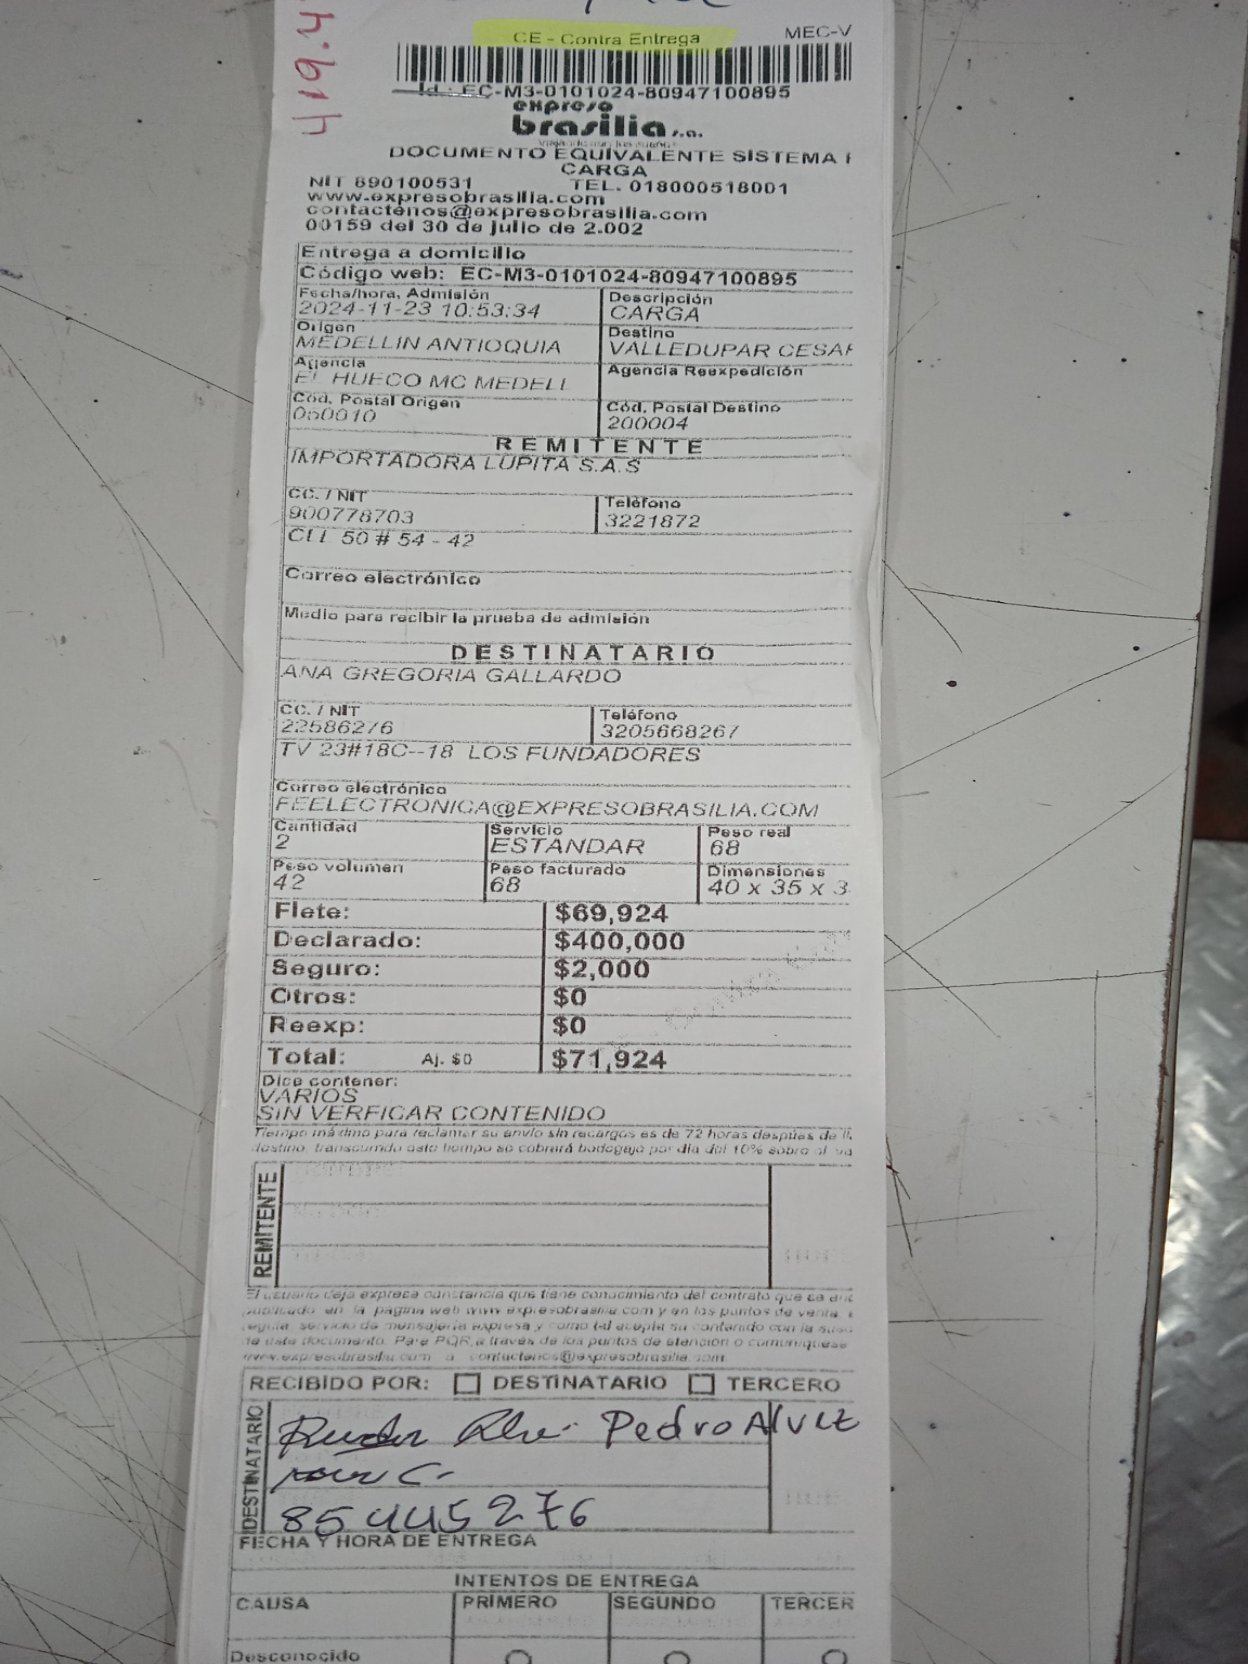 CE - Contra Entrega
MEC-V
Id : EC-M3-0101024-80947100895
expreso
brasilia s.a.
DOCUMENTO EQUIVALENTE SISTEMA
CARGA
NIT 890100531 TEL. 018000518001
www.expresobrasilia.com
contactenos@expresobrasilia.com
00159 del 30 de julio de 2.002
Entrega a domicilio
Código web: EC-M3-0101024-80947100895
Fecha/hora, Admisión Descripción
2024-11-23 10:53:34 CARGA
Origen Destino
MEDELLIN ANTIOQUIA VALLEDUPAR CESAR
Agencia Agencia Reexpedición
EL HUECO MC MEDELL
Cód. Postal Origen Cód. Postal Destino
050010 200004
REMITENTE
IMPORTADORA LUPITA S.A.S
CC. / NIT Teléfono
900778703 3221872
CLL 50 # 54 - 42
Correo electrónico
Medio para recibir la prueba de admisión
DESTINATARIO
ANA GREGORIA GALLARDO
CC. / NIT Teléfono
22586276 3205668267
TV 23#18C--18 LOS FUNDADORES
Correo electrónico
FEELECTRONICA@EXPRESOBRASILIA.COM
Cantidad Servicio Peso real
2 ESTANDAR 68
Peso volumen Peso facturado Dimensiones
42 68 40 x 35 x 3
Flete: $69,924
Declarado: $400,000
Seguro: $2,000
Otros: $0
Reexp: $0
Total: Aj. $0 $71,924
Dice contener:
VARIOS
SIN VERFICAR CONTENIDO
Tiempo máximo para reclamar su envío sin recargos es de 72 horas después de
destino, transcurrido este tiempo se cobrará bodegaje por día del 10% sobre el
REMITENTE
El usuario deja expresa constancia que tiene conocimiento del contrato que se
publicado en la página web www.expresobrasilia.com y en los puntos de venta,
regula servicio de mensajería expresa y como tal acepta su contenido con la
de este documento. Para PQR a través de los puntos de atención o comuniquese
www.expresobrasilia.com a contactenos@expresobrasilia.com
RECIBIDO POR: DESTINATARIO TERCERO
DESTINATARIO
Pedro Alvez
85445276
FECHA Y HORA DE ENTREGA
INTENTOS DE ENTREGA
CAUSA PRIMERO SEGUNDO TERCER
Desconocido